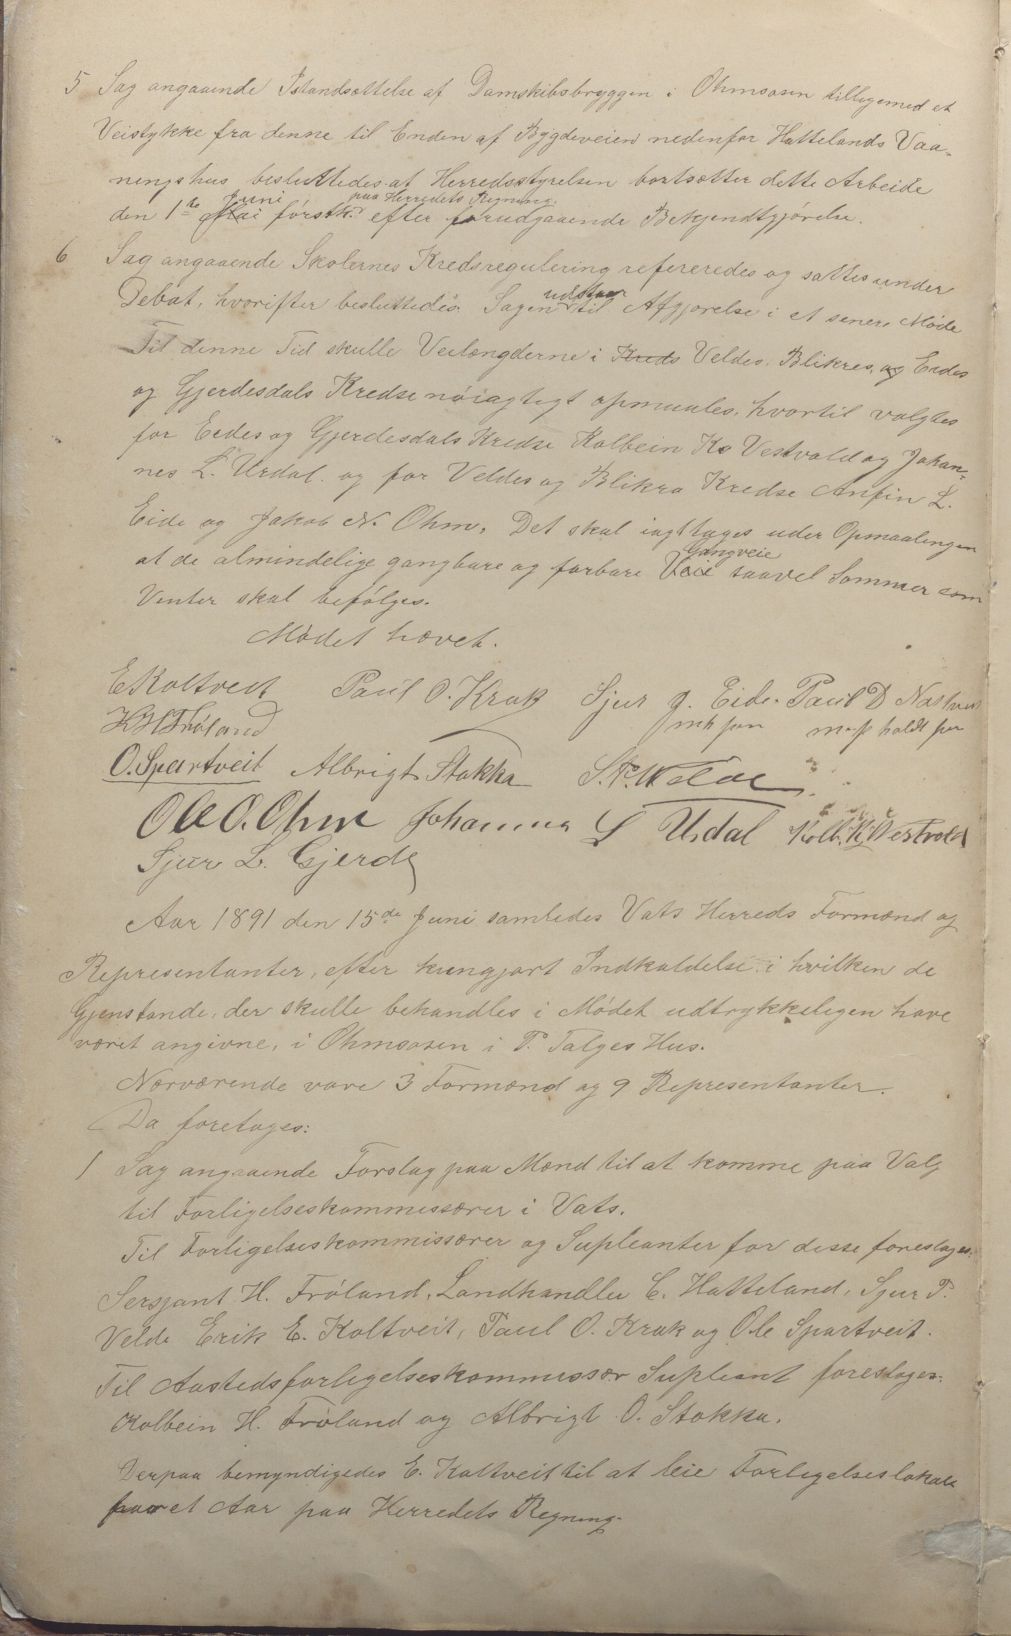 5 Sag angaaende Istandsættelse af Damskibsbryggen i Ohmsosen tilligemed et
Veistykke fra denne til Enden af Bygdeveien nedenfor Hattelands Vaa-
ningshus besluttedes at Herredsstyrelsen bortsætter dette Arbeide
Juni paa Herredets Regning
den 1ste Mai førstk. efter forudgaaende Bekjendtgjørelse.
6 Sag angaaende Skolernes Kredsregulering refereredes og sattes under
Debat, hvorifter besluttedes: Sagen udstaar til Afgjorelse i et senere Møde
Til denne Tid skulle Veilængderne i Kreds Veldes, Blikres, og Eides
og Gjerdesdals Kredse nøiagtigt opmaales, hvortil valgtes
for Eides og Gjerdesdals Kredse Kolbein Ks Vestvold og Johan-
nes L. Urdal. og for Veldes og Blikra Kredse Anfin L.
Eide og Jakob N. Ohm. Det skal iagttages uder Opmaalingen
Gangveie
at de almindelige gangbare og farbare Veie saavel Sommer som
Vinter skal befølges.
Mødet hævet.
E Koltveit Paul O. Krak Sjur J. Eide Paul D
H H Frøland
O. Spartveit Albrigt Stakka S. P. Velde
Ole O. Ohm Johannes L Urdal Kolb. K. Vestvold
Sjur L. Gjerde
Aar 1891 den 15de Juni samledes Vats Herreds Formænd og
Representanter, efter kungjort Indkaldelse i hvilken de
Gjenstande, der skulle behandles i Mødet udtrykkeligen have
været angivne, i Ohmsosen i P. Talges Hus.
Nærværende vare 3 Formænd og 9 Representanter.
Da foretoges:
1 Sag angaaende Forslag paa Mænd til at komme paa Valg
til Forligelseskommissærer i Vats.
Til Forligelseskommissærer og Supleanter for disse foreslages:
Sersjant H. Frøland, Landhandler C. Hatteland, Sjur P.
Velde Erik E. Koltveit, Paul O. Krak og Ole Spartveit.
Til Aastedsforligelseskommissær Supleant foreslages:
Kolbein H. Frøland og Albrigt O. Stakka.
Derpaa bemyndigedes E. Koltveit til at leie Forligelseslokale
for et Aar paa Herredets Regning.